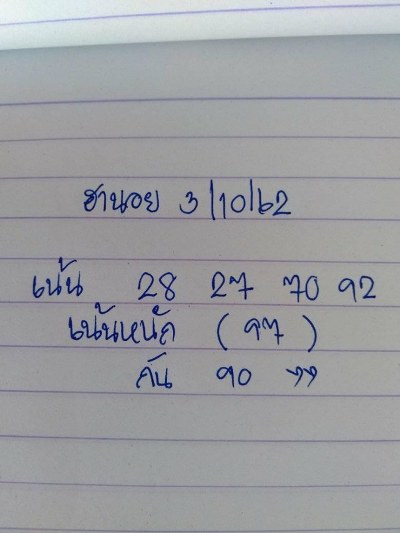 ฮานอย 3/10/62
เน้น 28 27 70 92
เน้นหนัก (97)
กัน 90 77